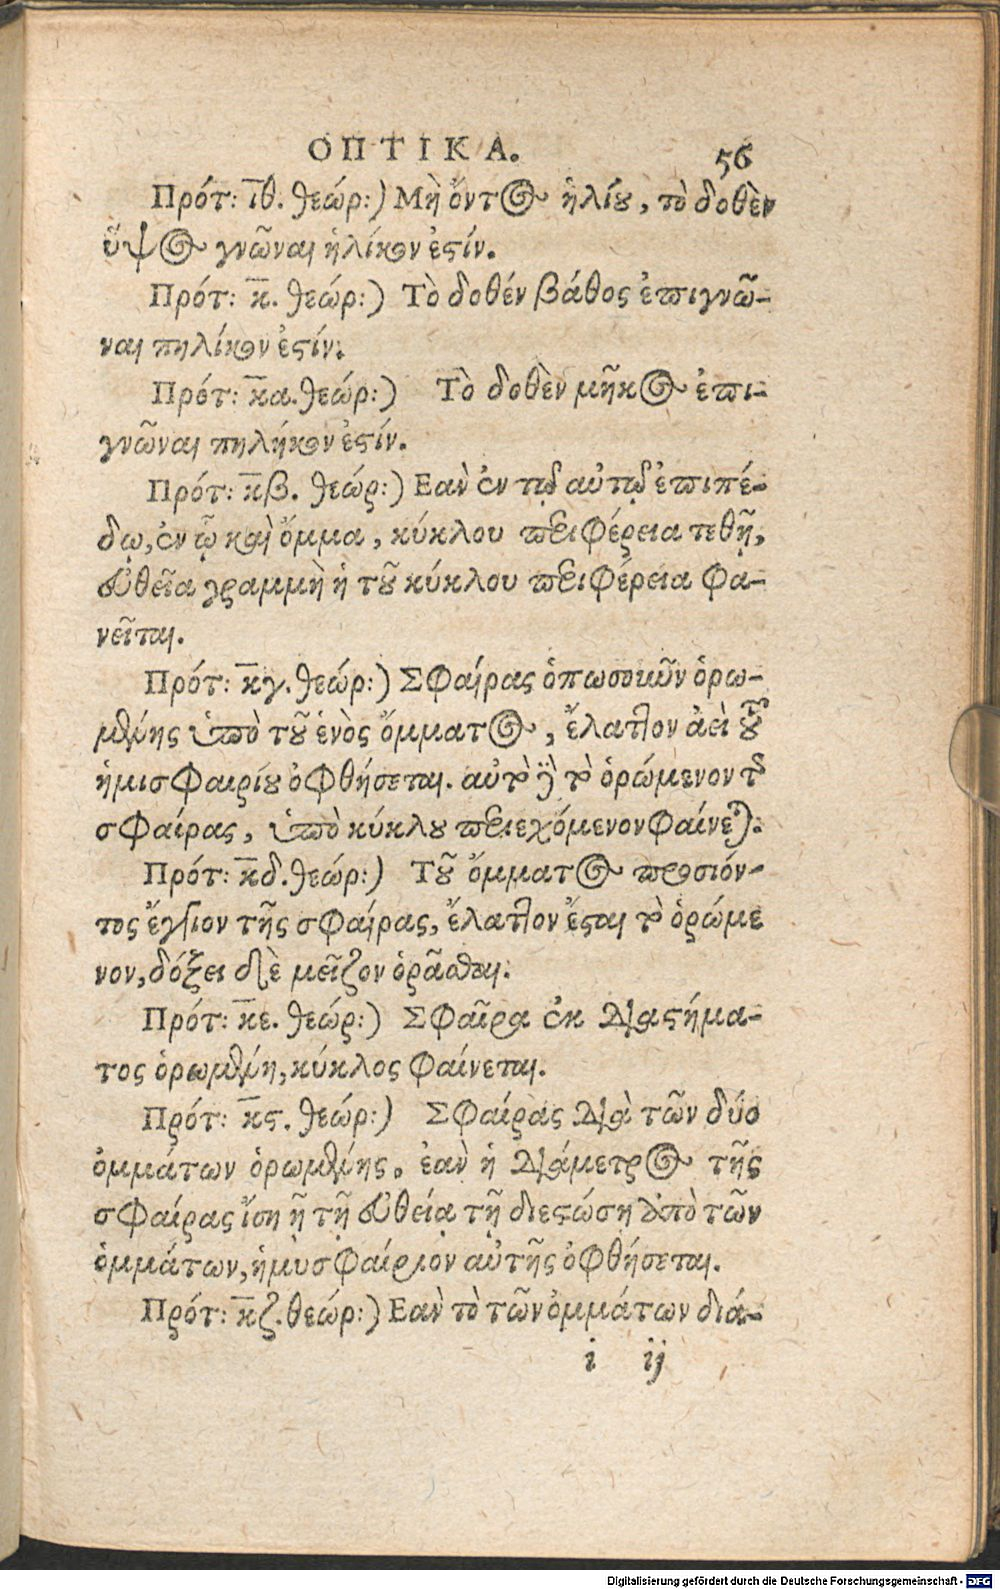 ΟΠΤΙΚΑ. 56
Πρότ: ι̅θ. θεώρ:) Μὴ ὄντος ἡλίου, τὸ δοθὲν
ὕψος γνῶναι ἡλίκον ἐστίν.
Πρότ: κ̅. θεώρ:) Τὸ δοθέν βάθος ἐπιγνῶ-
ναι πηλίκον ἐστίν.
Πρότ: κ̅α. θεώρ:) Τὸ δοθὲν μῆκος ἐπι-
γνῶναι πηλήκον ἐστίν.
Πρότ: κ̅β. θεώρ:) Εαὶν ἐν τῷ αὐτῷ ἐπιπέ-
δῳ, ἐν ᾧ καὶ ὄμμα, κύκλου περιφέρεια τεθῇ,
εὐθεῖα γραμμὴ ἡ τοῦ κύκλου περιφέρεια φα-
νεῖται.
Πρότ: κ̅γ. θεώρ:) Σφαίρας ὁπωσοιοῦν ὁρω-
μένης ὑπὸ τοῦ ἑνὸς ὄμματος, ἔλαττον ἀεὶ τοῦ
ἡμισφαιρίου ὀφθήσεται. αὐτὸ δὲ τὸ ὁρώμενον τῆς
σφαίρας, ὑπὸ κύκλου περιεχόμενον φαίνεται.
Πρότ: κ̅δ. θεώρ:) Τοῦ ὄμματος προσιόν-
τος ἔγγιον τῆς σφαίρας, ἔλαττον ἔσται τὸ ὁρώμε
νον, δόξει δὲ μεῖζον ὁρᾶσθαι.
Πρότ: κ̅ε. θεώρ:) Σφαῖρα ἐκ διαστήμα-
τος ὁρωμένη, κύκλος φαίνεται.
Πρότ: κ̅ϛ. θεώρ:) Σφαίρας διὰ τῶν δύο
ὀμμάτων ὁρωμένης, ἐὰν ἡ διάμετρος τῆς
σφαίρας ἴση ᾖ τῇ εὐθείᾳ τῇ διεστώσῃ ἀπὸ τῶν
ὀμμάτων, ἡμυσφαίριον αὐτῆς ὀφθήσεται.
Πρότ: κ̅ζ. θεώρ:) Εαὶν τὸ τῶν ὀμμάτων διά-
i ij
Digitalisierung gefördert durch die Deutsche Forschungsgemeinschaft - DFG